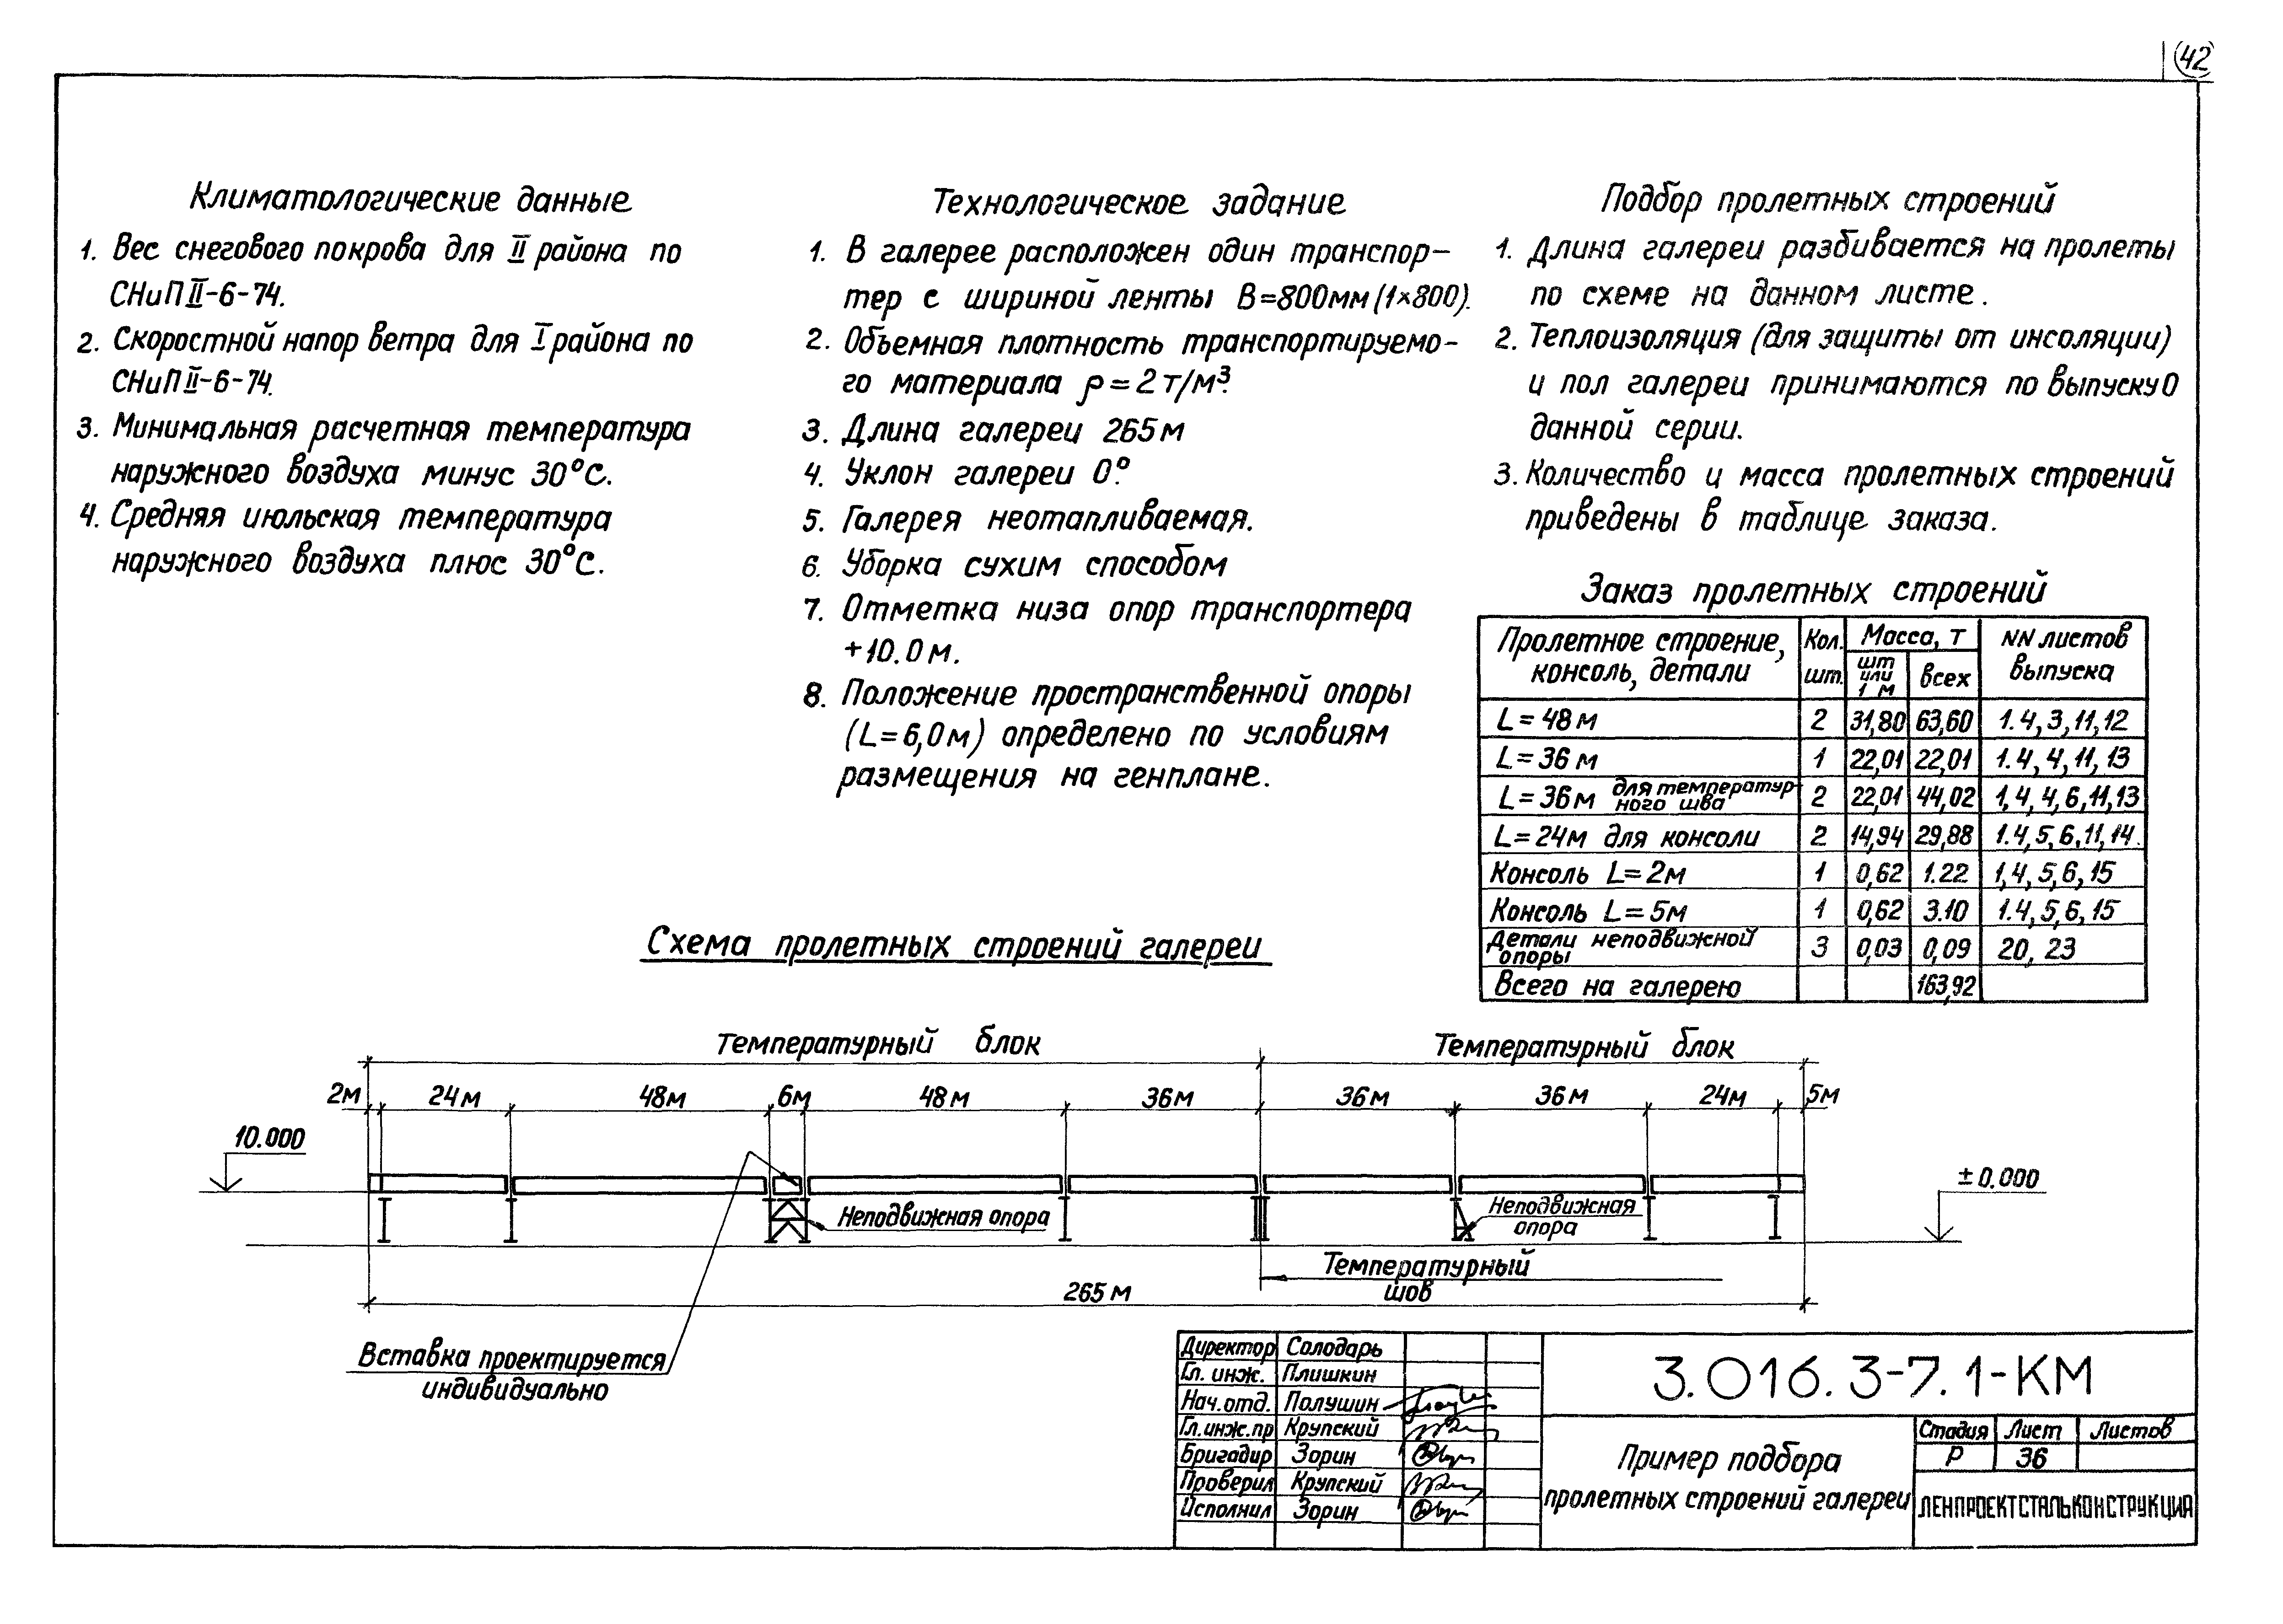 42
Климатологические данные
1. Вес снегового покрова для II района по
СНиП II-6-74.
2. Скоростной напор ветра для I района по
СНиП II-6-74.
3. Минимальная расчетная температура
наружного воздуха минус 30°С.
4. Средняя июльская температура
наружного воздуха плюс 30°С.
Технологическое задание
1. В галерее расположен один транспор-
тер с шириной ленты В=800мм (1×800).
2. Объемная плотность транспортируемо-
го материала ρ = 2 т/м³.
3. Длина галереи 265 м
4. Уклон галереи 0°.
5. Галерея неотапливаемая.
6. Уборка сухим способом
7. Отметка низа опор транспортера
+10.0 м.
8. Положение пространственной опоры
(L=6,0м) определено по условиям
размещения на генплане.
Подбор пролетных строений
1. Длина галереи разбивается на пролеты
по схеме на данном листе.
2. Теплоизоляция (для защиты от инсоляции)
и пол галереи принимаются по выпуску 0
данной серии.
3. Количество и масса пролетных строений
приведены в таблице заказа.
Заказ пролетных строений
Пролетное строение, консоль, детали Кол. шт. Масса, т шт или 1 м всех NN листов выпуска
L = 48 м 2 31,80 63,60 1.4, 3, 11, 12
L = 36 м 1 22,01 22,01 1.4, 4, 11, 13
L = 36 м для температурного шва 2 22,01 44,02 1,4, 4, 6, 11, 13
L = 24м для консоли 2 14,94 29,88 1.4, 5, 6, 11, 14.
Консоль L = 2м 1 0,62 1.22 1,4, 5, 6, 15
Консоль L = 5м 1 0,62 3.10 1.4, 5, 6, 15
Детали неподвижной опоры 3 0,03 0,09 20, 23
Всего на галерею 163,92
Схема пролетных строений галереи
Температурный блок Температурный блок
2м 24 м 48м 6м 48 м 36м 36м 36 м 24м 5м
10.000
± 0.000
Неподвижная опора
Неподвижная
опора
Температурный
шов
265 м
Вставка проектируется
индивидуально
Директор Солодарь
Гл. инж. Плишкин
Нач. отд. Полушин
Гл. инж. пр Крупский
Бригадир Зорин
Проверил Крупский
Исполнил Зорин
3.016.3-7.1-КМ
Пример подбора
пролетных строений галереи
Стадия Лист Листов
Р 36
ЛЕНПРОЕКТСТАЛЬКОНСТРУКЦИЯ